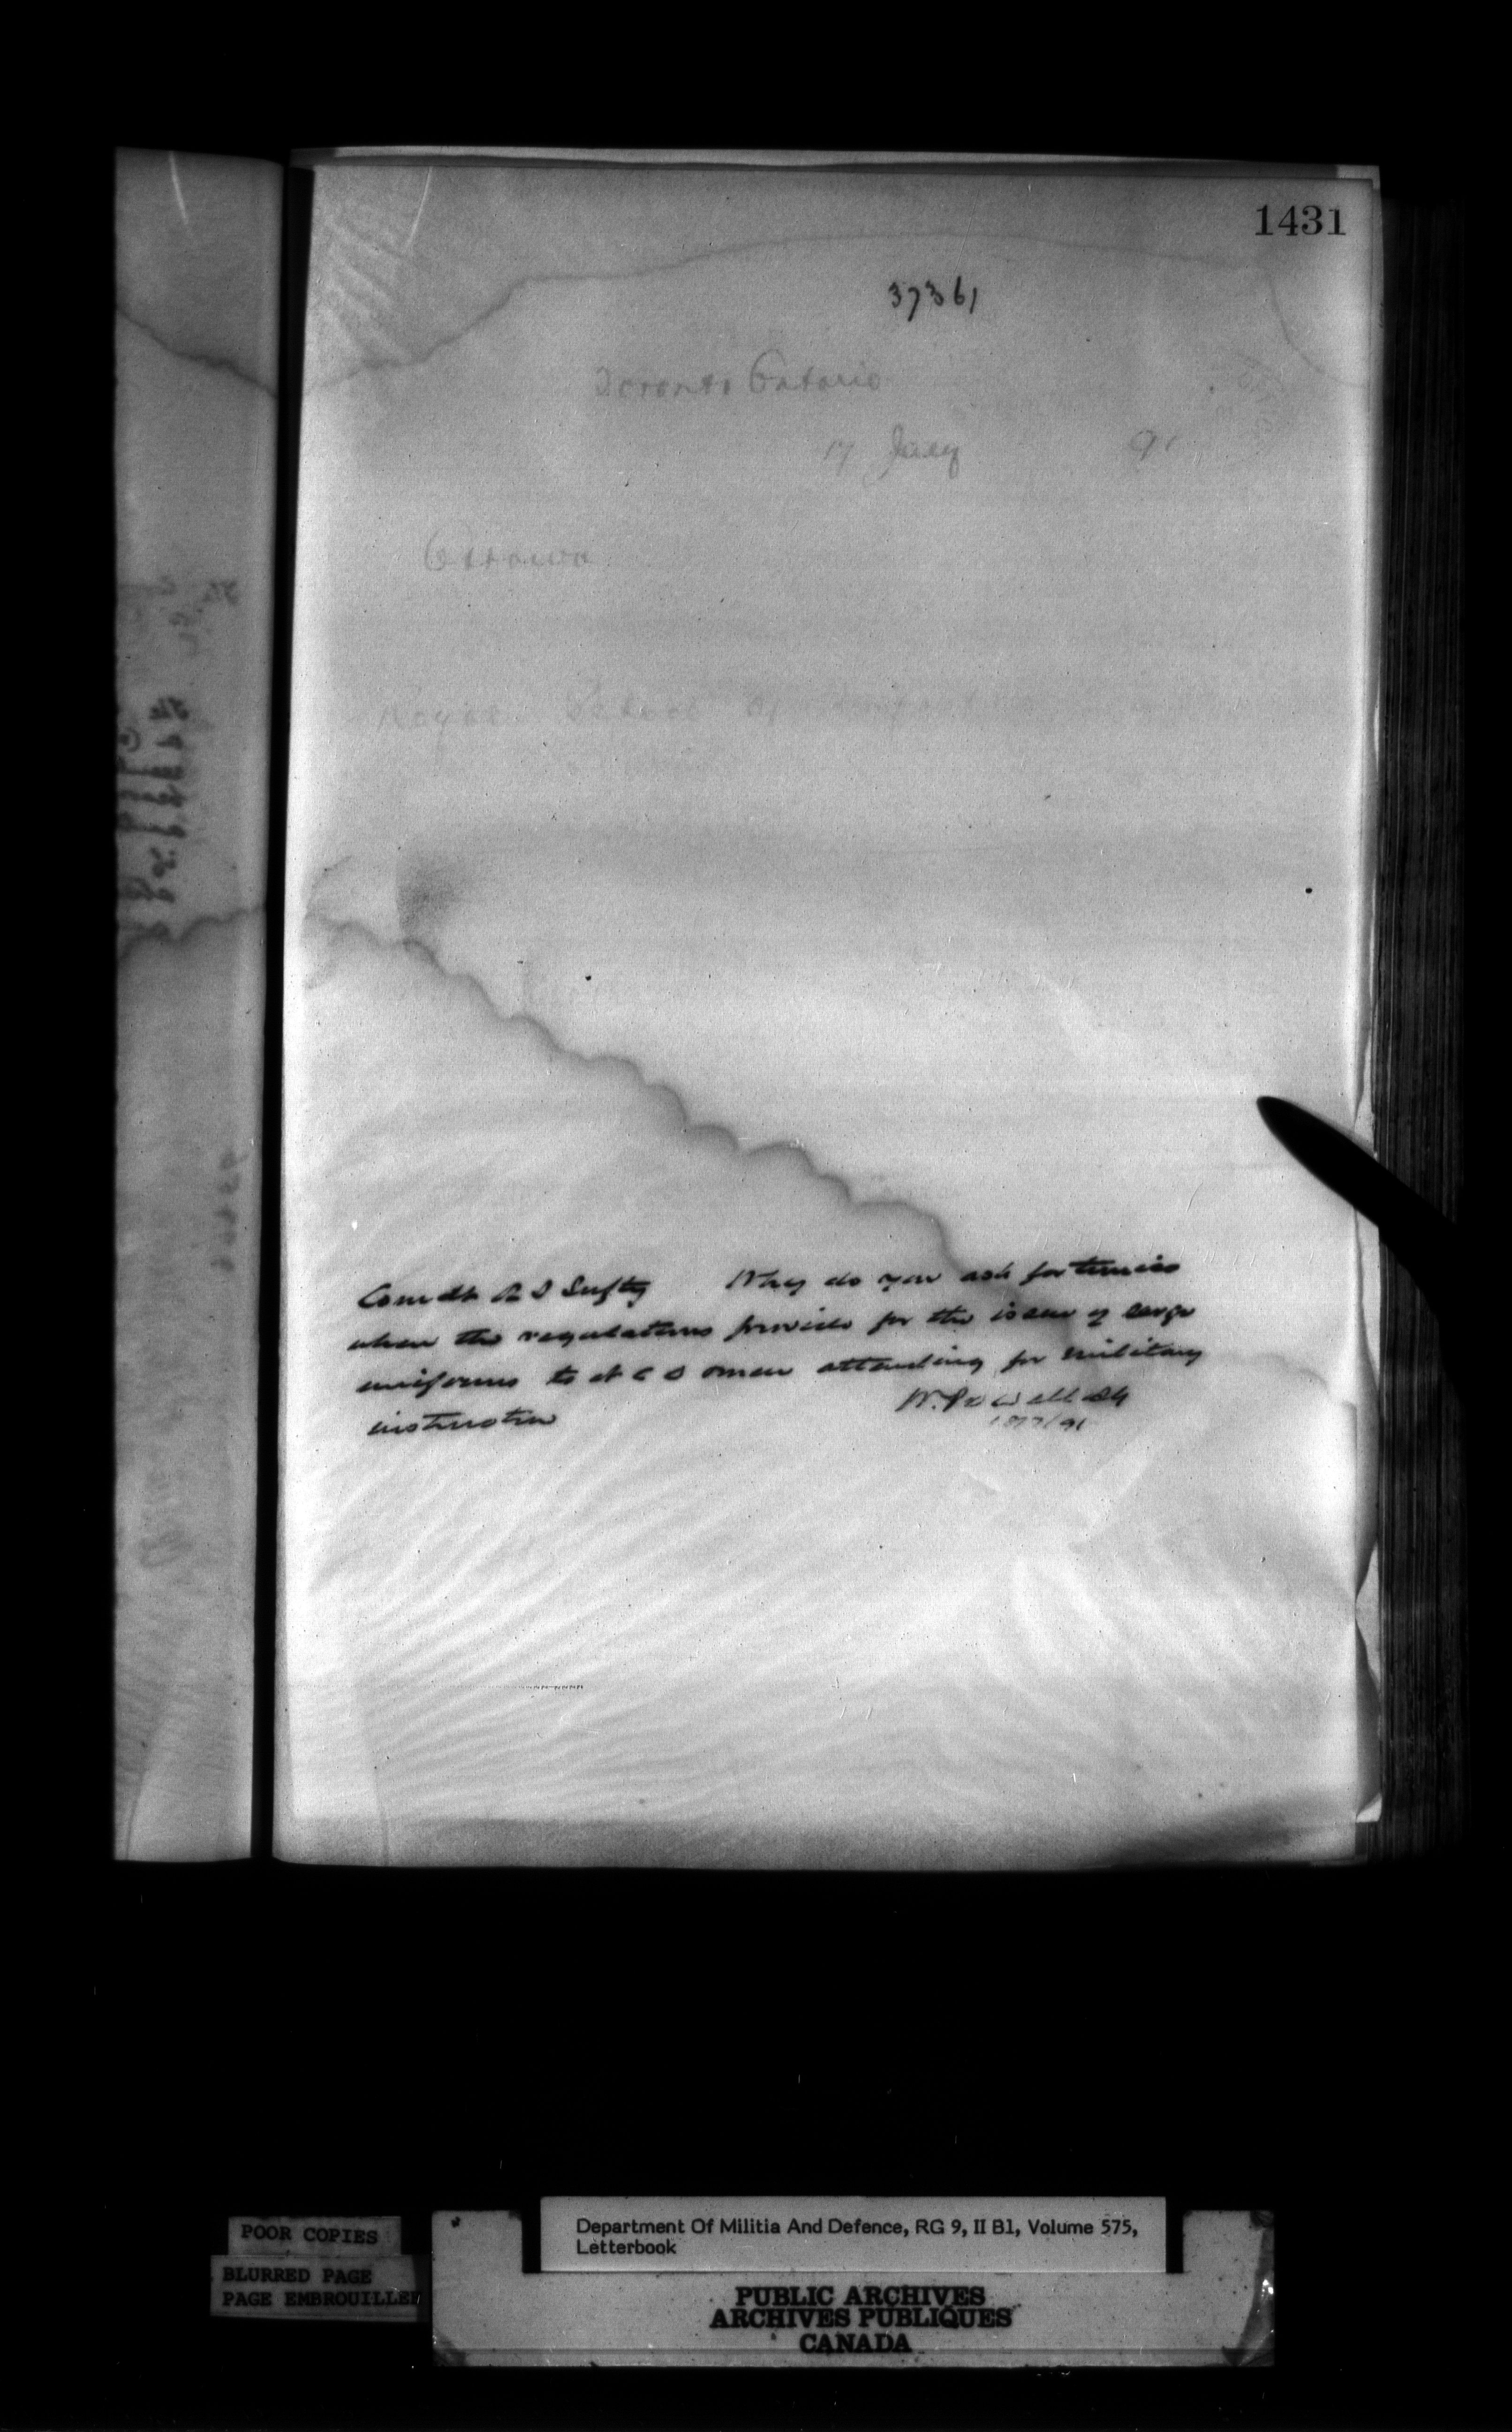 1431
37361
Toronto Ontario
17 July 91
Ottawa
Royal School of
Comdt R S Infty Why do you ask for tunics
when the regulations provide for the issue of serge
uniforms to N C O & men attending for military
instruction W. Powell AG
18/7/91
POOR COPIES
BLURRED PAGE
PAGE EMBROUILLEE
Department Of Militia And Defence, RG 9, II B1, Volume 575,
Letterbook
PUBLIC ARCHIVES
ARCHIVES PUBLIQUES
CANADA